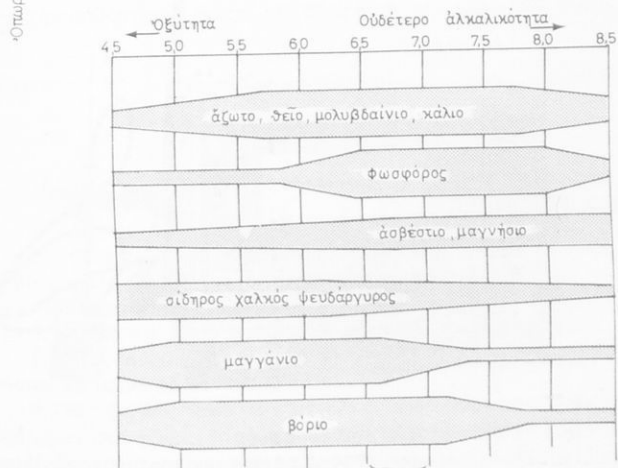 Ὀξύτητα Οὐδέτερο ἀλκαλικότητα
4,5 5,0 5,5 6,0 6,5 7,0 7,5 8,0 8,5
ἄζωτο, θεῖο, μολυβδαίνιο, κάλιο
φωσφόρος
ἀσβέστιο, μαγνήσιο
σίδηρος χαλκός ψευδάργυρος
μαγγάνιο
βόριο